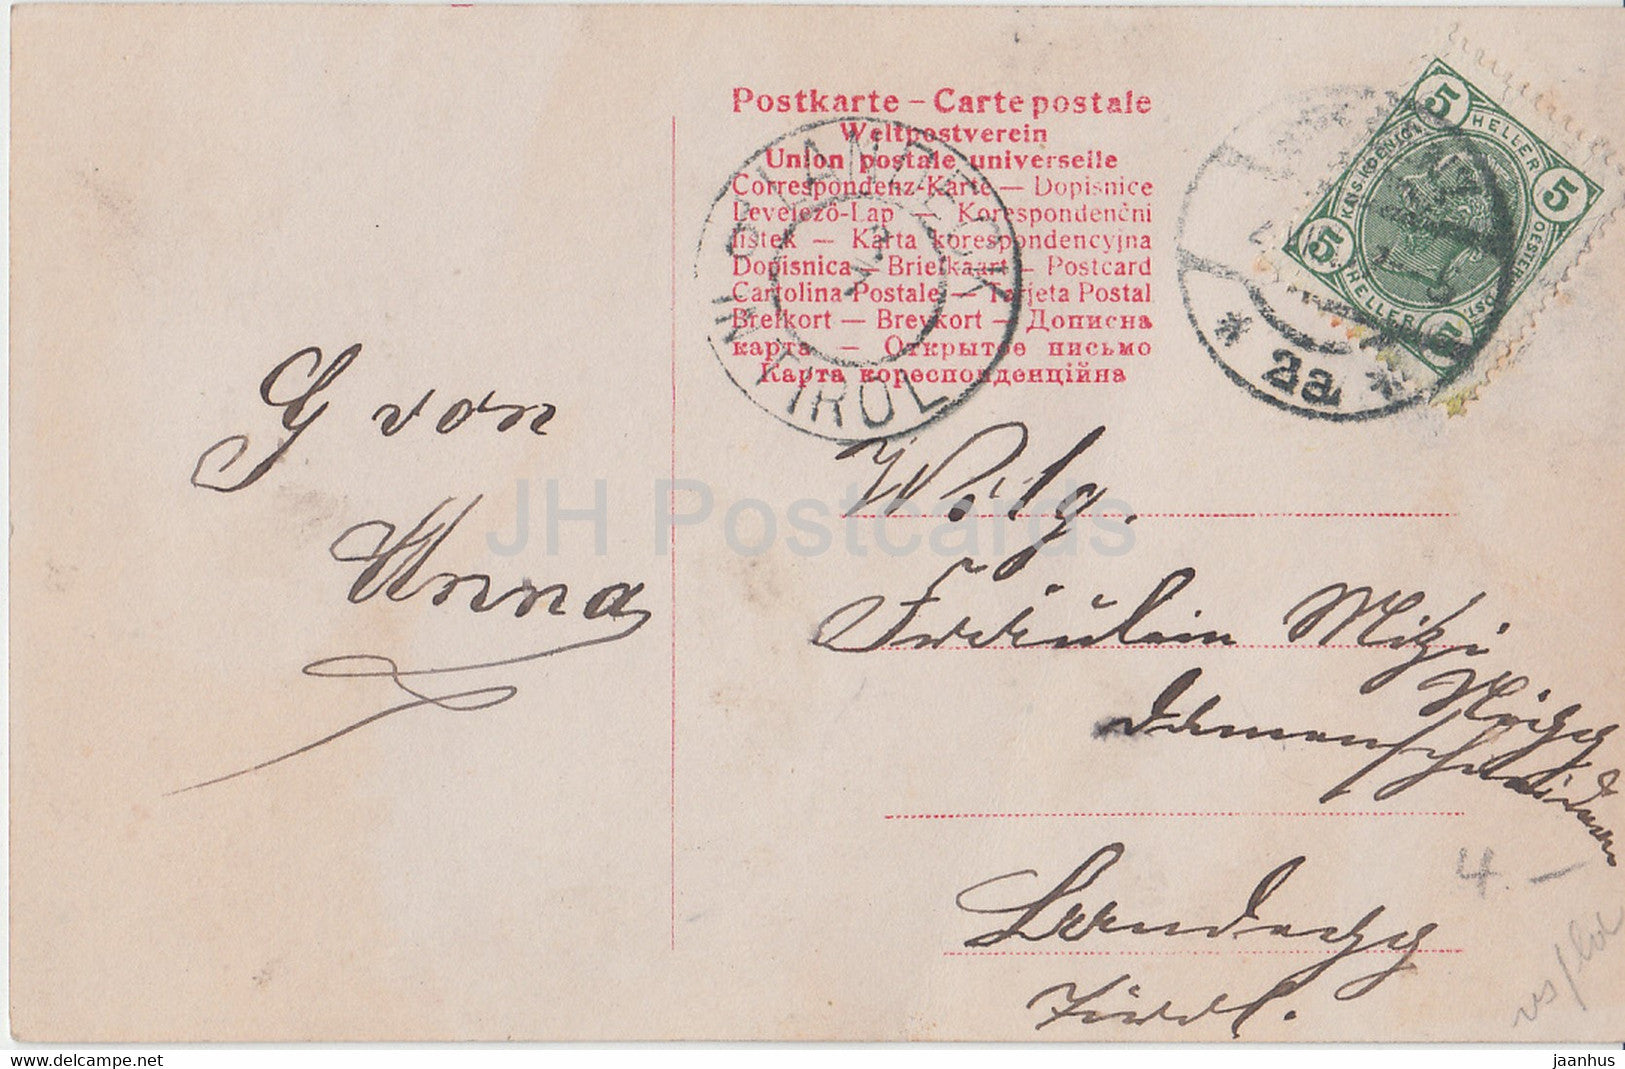 Postkarte – Carte postale
Weltpostverein
Union postale universelle
Correspondenz-Karte — Dopisnice
Levelező-Lap — Korespondenčni
listek — Karta korespondencyjna
Dopisnica — Briefkaart — Postcard
Cartolina Postale — Tarjeta Postal
Brefkort — Brevkort — Дописна
карта — Открытое письмо
Карта кореспонденційна
TIROL
5 HELLER 5
KAIS. KOENIGL.
OESTERR. POST
5 HELLER 5
2a
G von
Anna
Wolg.
Fräulein Mitzi
Landegg
Tirol.
4 —
JH Postcards
www.delcampe.net
jaanhus